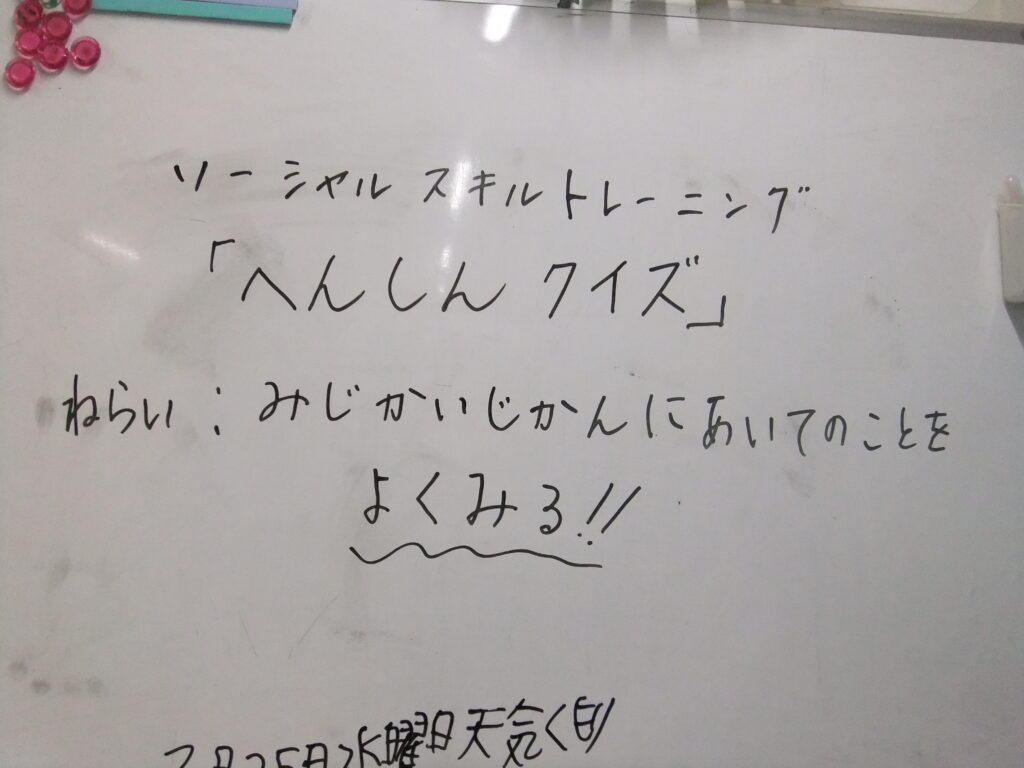 ソーシャルスキルトレーニング
「へんしんクイズ」
ねらい:みじかいじかんにあいてのことを
よくみる!!
水曜日天気く